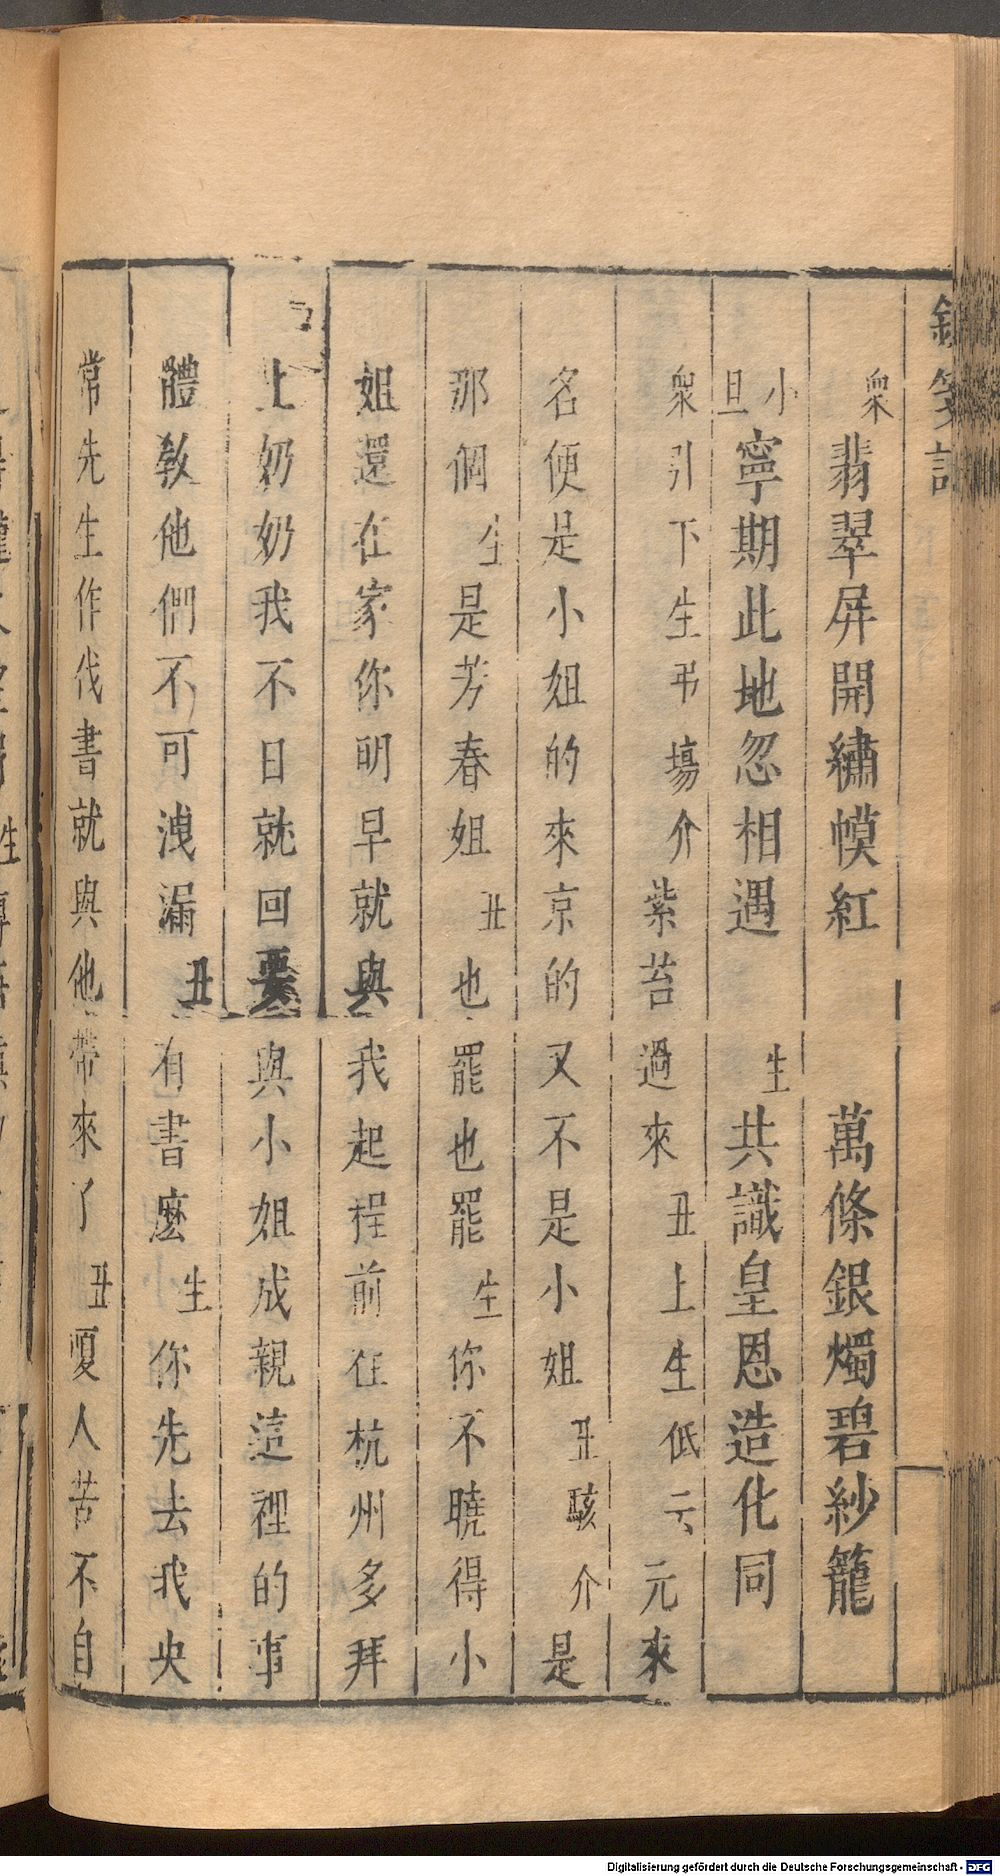 箋記
衆翡翠屏開繡幙紅　萬條銀燭碧紗籠
小旦寧期此地忽相遇　生共識皇恩造化同
衆引下生弔塲介紫苔過來丑上生低云元來
名便是小姐的來京的又不是小姐丑駭介是
那個生是芳春姐丑也罷也罷生你不曉得小
姐還在家你明早就與我起程前往杭州多拜
上奶奶我不日就回要與小姐成親這裡的事
體教他們不可洩漏丑有書麽生你先去我央
常先生作伐書就與他帶來了丑嗄人苦不自
Digitalisierung gefördert durch die Deutsche Forschungsgemeinschaft - DFG